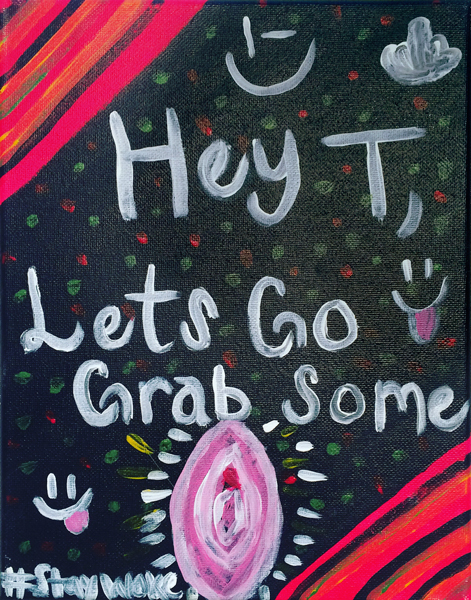 Hey T,
Lets Go
Grab Some
#StayWoke